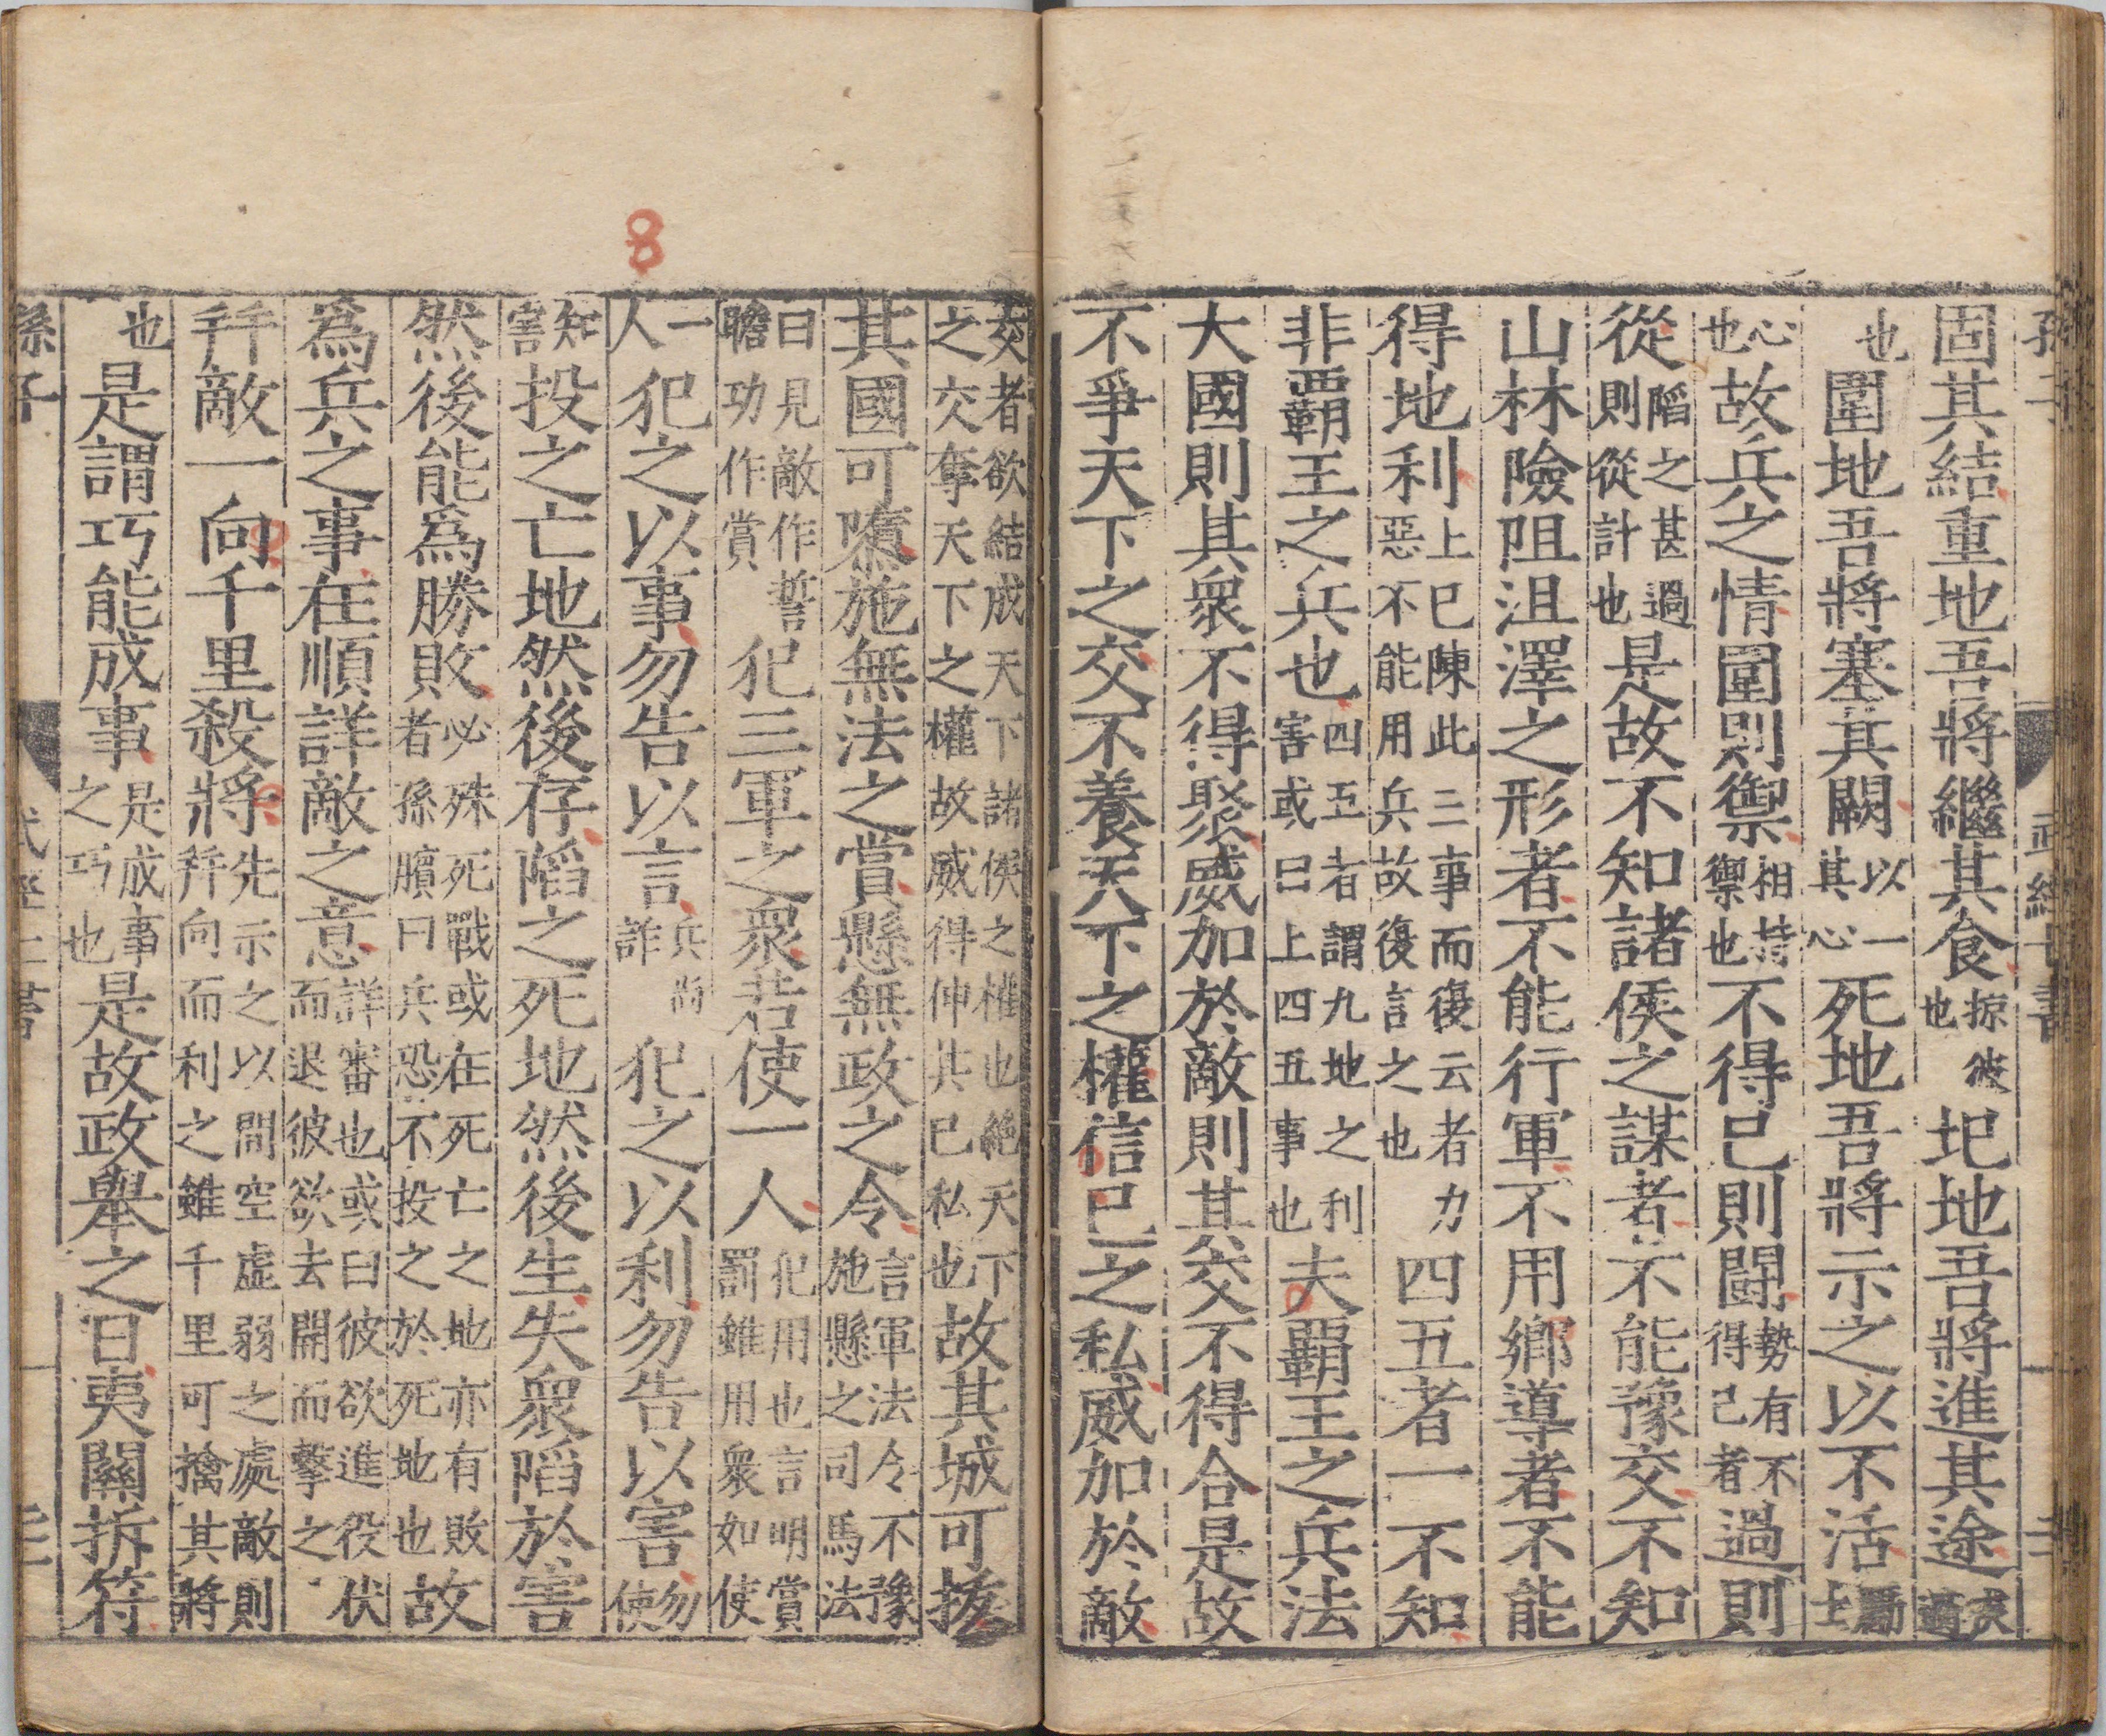 固其結重地吾將繼其食掠彼也圮地吾將進其途
也圍地吾將塞其闕以一其心死地吾將示之以不活勵士
心也故兵之情圍則禦相持禦也不得已則鬪勢有不得已者過則
從陷之甚過則從計也是故不知諸侯之謀者不能豫交不知
山林險阻沮澤之形者不能行軍不用鄉導者不能
得地利上已陳此三事而復云者力惡不能用兵故復言之也四五者一不知
非霸王之兵也四五者謂九地之利害或曰上四五事也夫霸王之兵法
大國則其眾不得聚威加於敵則其交不得合是故
不爭天下之交不養天下之權信已之私威加於敵
交者欲結成天下諸侯之權也絕天下之交奪天下之權故威得伸其已私也故其城可拔
其國可隳施無法之賞懸無政之令言軍法令不豫施懸之司馬法
曰見敵作誓瞻功作賞犯三軍之眾若使一人犯用也言明賞罰雖用眾如使
一人犯之以事勿告以言兵尚詐犯之以利勿告以害勿使
知害投之亡地然後存陷之死地然後生夫眾陷於害
然後能爲勝敗必殊死戰或在死亡之地亦有敗者孫臏曰兵恐不投之於死地也故
爲兵之事在順詳敵之意詳審也或曰彼欲進役伏而退彼欲去開而擊之
千千敵一向千里殺將先示之以間空虛弱之處敵則并向而利之雖千里可擒其將
也是謂巧能成事是成事之巧也是故政舉之日夷關拆符
孫子 武經七書